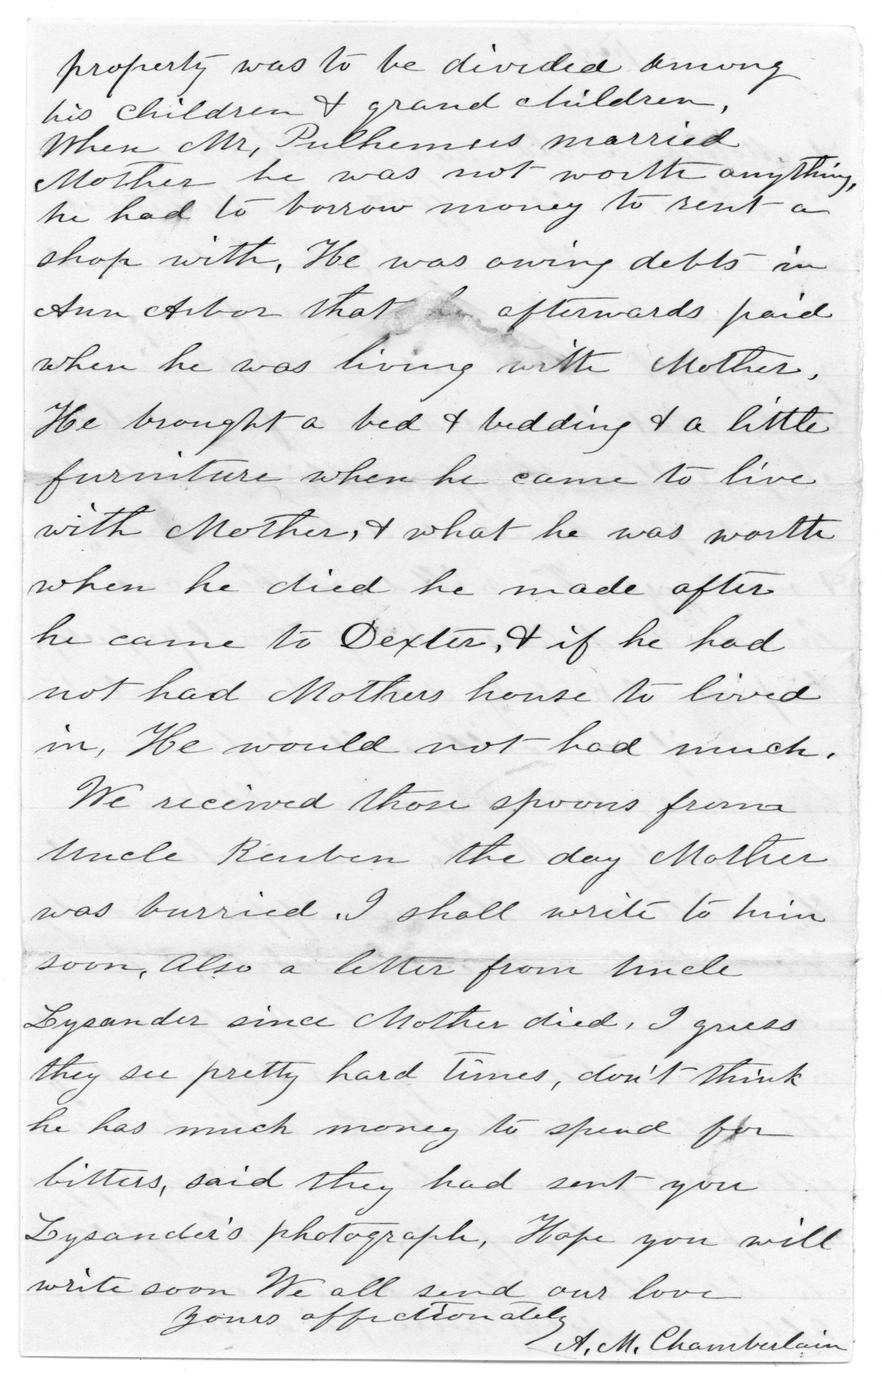 property was to be divided among
his children & grand children,
When Mr, Pulhemus married
Mother he was not worth anything,
he had to borrow money to rent a
shop with, He was owing debts in
Ann Arbor that he afterwards paid
when he was living with Mother,
He brought a bed & bedding & a little
furniture when he came to live
with Mother, & what he was worth
when he died he made after
he came to Dexter, & if he had
not had Mothers house to lived
in, He would not had much.
We received those spoons from
Uncle Reuben the day Mother
was burried. I shall write to him
soon, Also a letter from Uncle
Lysander since Mother died, I guess
they see pretty hard times, don't think
he has much money to spend for
bitters, said they had sent you
Lysander's photograph, Hope you will
write soon We all send our love
yours affectionately
A. M. Chamberlain